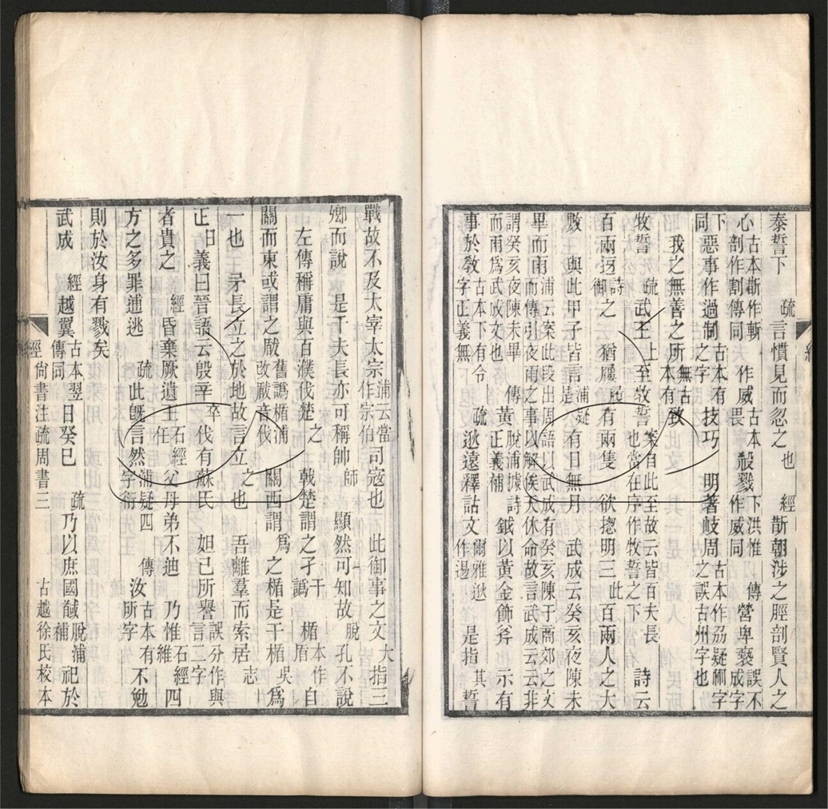 泰誓下 疏 言慣見而忽之 也 經 斮朝涉之脛剖賢人之
心 古本斮作斬剖作割傳同 作威 古本畏 殺戮 下洪惟作威同 傳 營卑褻 誤不成字
下同 惡事作過制 古本有之字 技巧 明著岐周 之誤古州字也
我之無善之所致 古本有無
牧誓 疏 武王 上至牧誓 案自此至故云皆百夫長也當在序作牧誓之下 詩云
百兩迓 詩御 之 猶屨 有兩隻 欲揔明三 此 百兩人之大
數 與此甲子皆言 浦疑是 有日無月 武成云癸亥夜陳未
畢而雨 浦云案此段出周語以武成有癸亥陳于商郊之文而傳引夜雨之事以解俟天休命故言武成云云非
謂癸亥夜陳未畢而雨爲武成文也 傳 黃 脫浦據詩正義補 鉞以黃金飾斧 示有
事於敎 古本下有令字正義無 疏 逖遠釋詁文 爾雅逖作逷 是指 其 誓
戰故不及太宰太宗 浦云當作宗伯 司寇也 此御事之文 大 指三
卿而說 是千夫長亦可稱帥 師 顯然可知故 脫 孔不說
左傳稱庸與百濮伐楚 之 戟楚謂之孑 干譌 楯 本作盾 自
關而東或謂之瞂 舊譌楯浦改瞂或伐 關西謂 爲 之楯是干楯 吳 爲
一也 矛長立之於地故言立 之 也 吾離羣而索居 志
正 曰 義曰晉語云殷辛 卒 伐有蘇氏 妲己所譽 誤分作與言二字
者貴之 經 昏棄厥遺王 石經任 父母弟不迪 乃惟 石經維 四
方之多罪逋逃 疏 此旣言然 浦疑四字衍 傳 汝所 古本有字 不勉
則於汝身有戮矣
武成 經 越翼 古本翌傳同 日癸巳 疏 乃以庶國馘 脫浦補 祀於
經尚書注疏周書三 古越徐氏校本